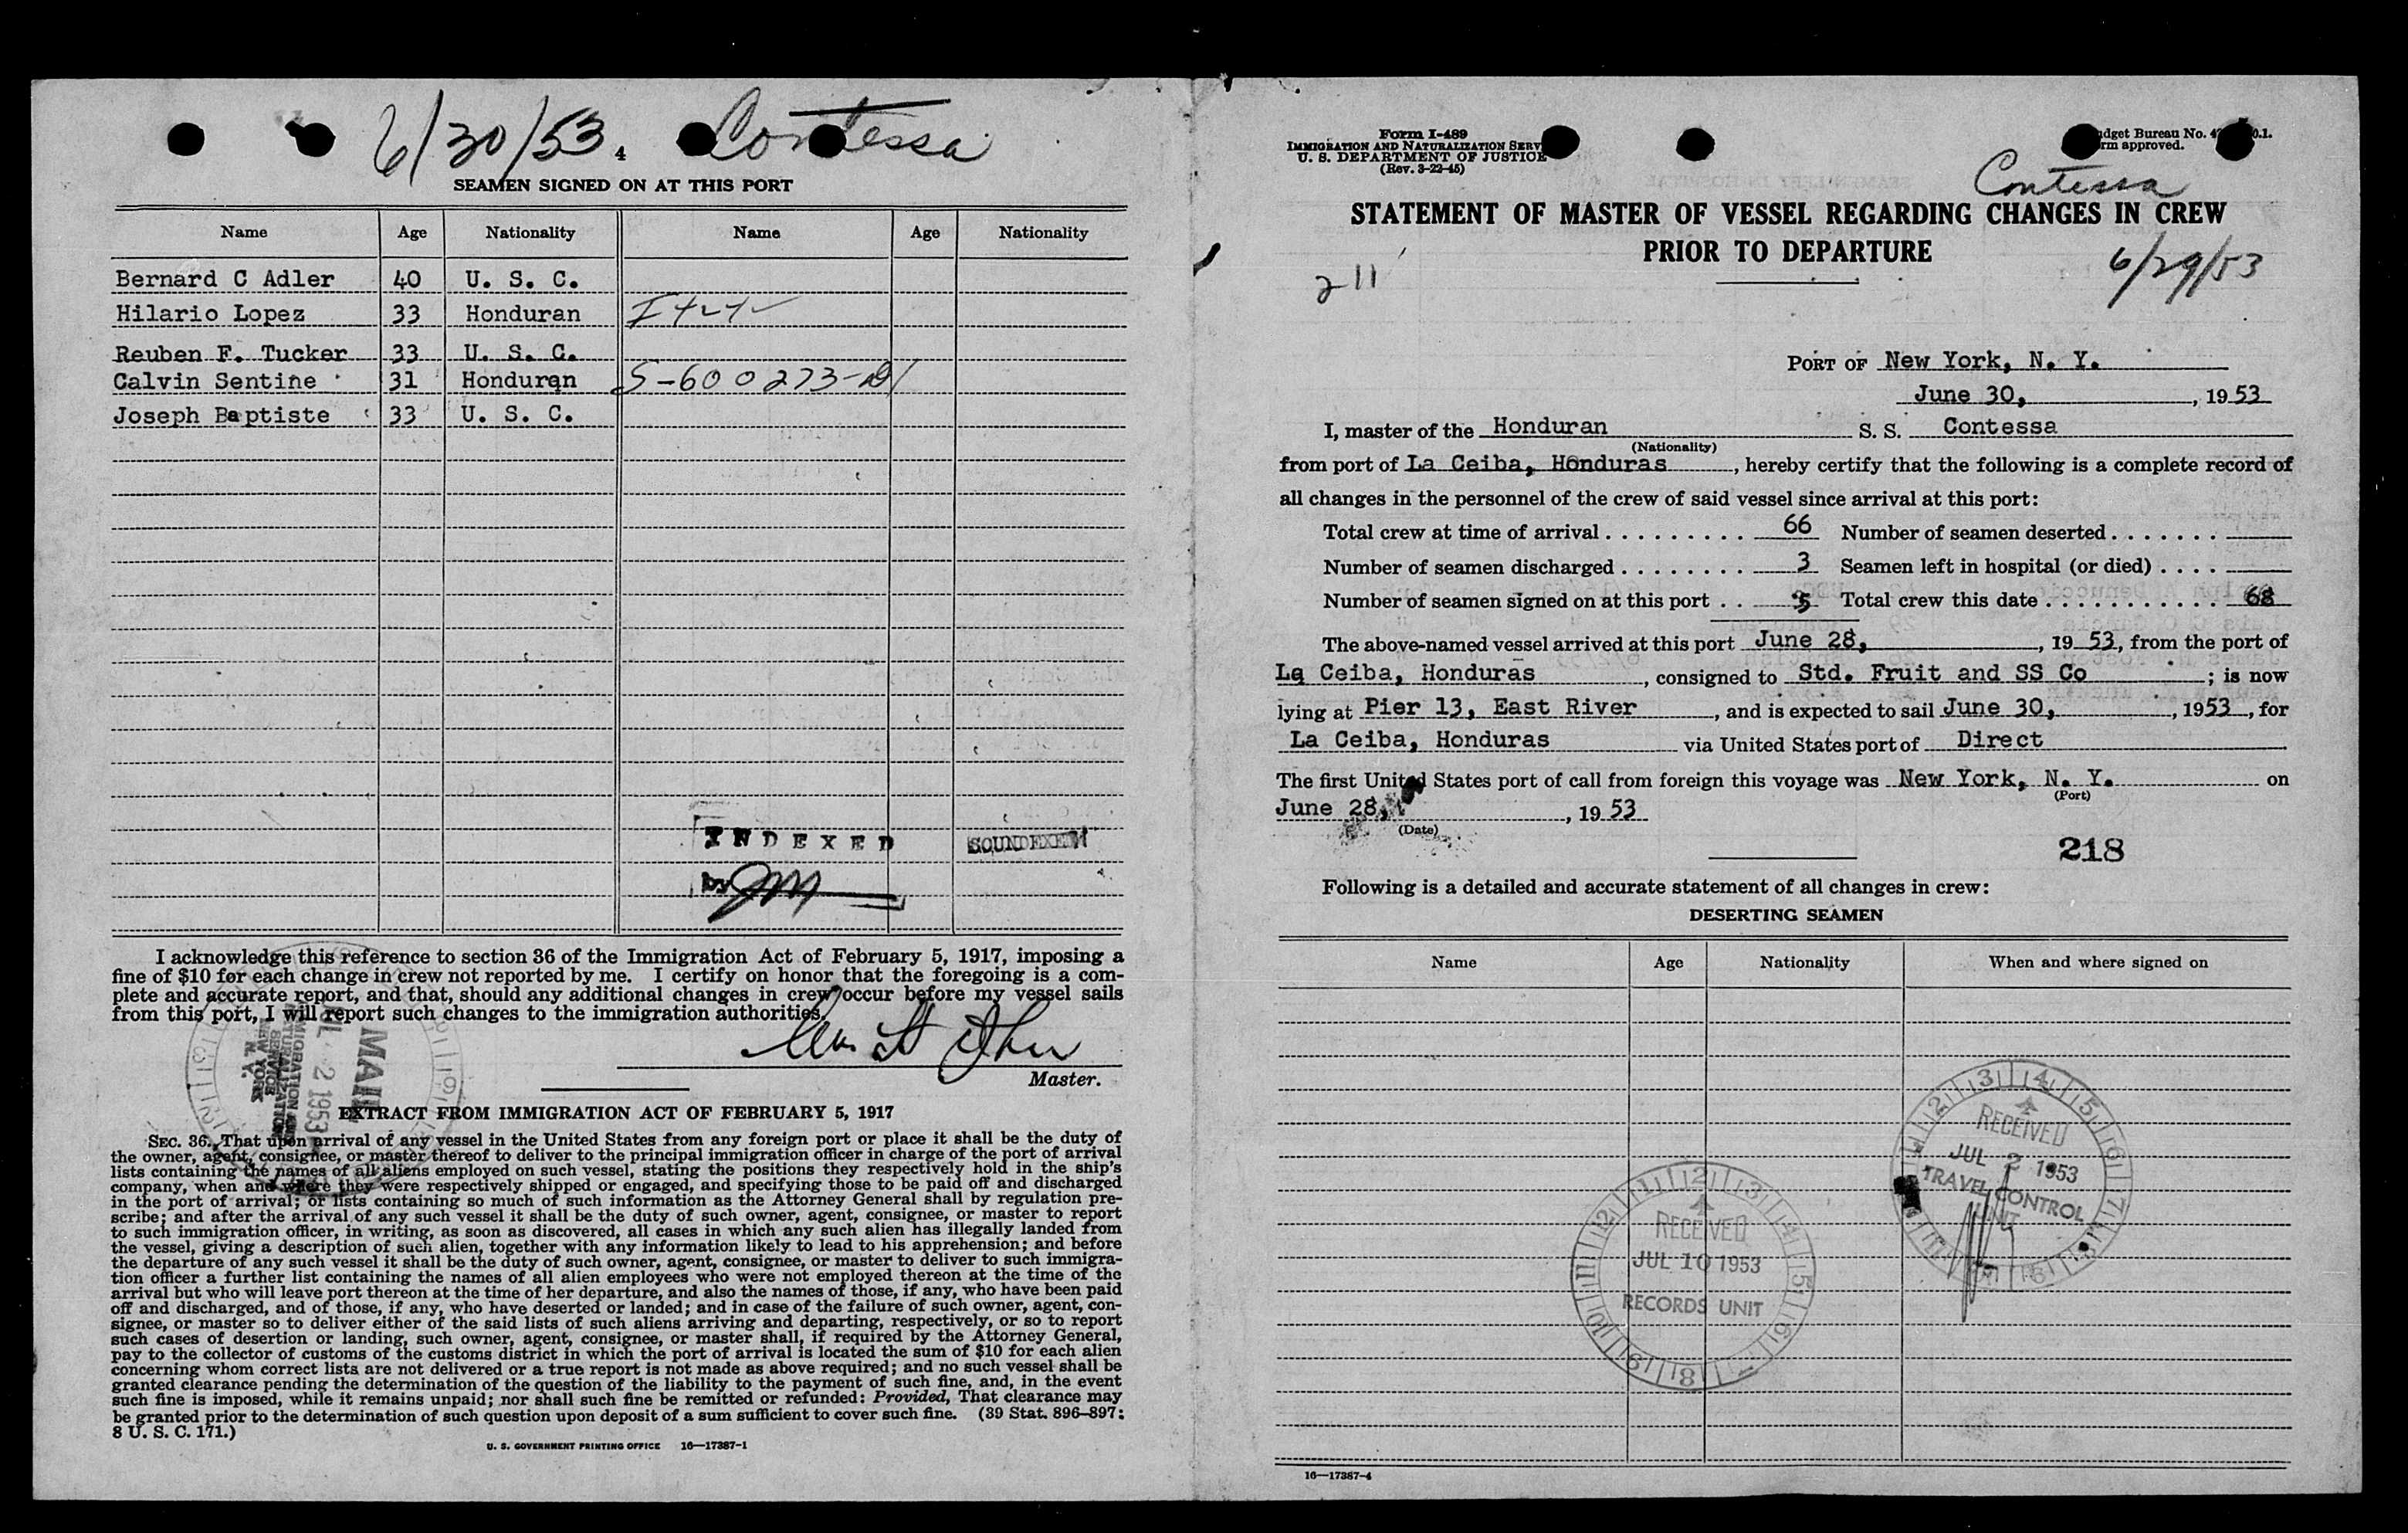 6/30/53 Contessa
4
SEAMEN SIGNED ON AT THIS PORT
Name Age Nationality Name Age Nationality
Bernard C Adler 40 U. S. C.
Hilario Lopez 33 Honduran
Reuben F. Tucker 33 U. S. C.
Calvin Sentine 31 Honduran S-600273-
Joseph Baptiste 33 U. S. C.
INDEXED SOUNDEXED
by JM
I acknowledge this reference to section 36 of the Immigration Act of February 5, 1917, imposing a
fine of $10 for each change in crew not reported by me. I certify on honor that the foregoing is a com-
plete and accurate report, and that, should any additional changes in crew occur before my vessel sails
from this port, I will report such changes to the immigration authorities.
Master.
MAIL
JUL 2 1953
IMMIGRATION AND
NATURALIZATION
SERVICE
NEW YORK
N. Y.
EXTRACT FROM IMMIGRATION ACT OF FEBRUARY 5, 1917
SEC. 36. That upon arrival of any vessel in the United States from any foreign port or place it shall be the duty of
the owner, agent, consignee, or master thereof to deliver to the principal immigration officer in charge of the port of arrival
lists containing the names of all aliens employed on such vessel, stating the positions they respectively hold in the ship's
company, when and where they were respectively shipped or engaged, and specifying those to be paid off and discharged
in the port of arrival; or lists containing so much of such information as the Attorney General shall by regulation pre-
scribe; and after the arrival of any such vessel it shall be the duty of such owner, agent, consignee, or master to report
to such immigration officer, in writing, as soon as discovered, all cases in which any such alien has illegally landed from
the vessel, giving a description of such alien, together with any information likely to lead to his apprehension; and before
the departure of any such vessel it shall be the duty of such owner, agent, consignee, or master to deliver to such immigra-
tion officer a further list containing the names of all alien employees who were not employed thereon at the time of the
arrival but who will leave port thereon at the time of her departure, and also the names of those, if any, who have been paid
off and discharged, and of those, if any, who have deserted or landed; and in case of the failure of such owner, agent, con-
signee, or master so to deliver either of the said lists of such aliens arriving and departing, respectively, or so to report
such cases of desertion or landing, such owner, agent, consignee, or master shall, if required by the Attorney General,
pay to the collector of customs of the customs district in which the port of arrival is located the sum of $10 for each alien
concerning whom correct lists are not delivered or a true report is not made as above required; and no such vessel shall be
granted clearance pending the determination of the question of the liability to the payment of such fine, and, in the event
such fine is imposed, while it remains unpaid; nor shall such fine be remitted or refunded: Provided, That clearance may
be granted prior to the determination of such question upon deposit of a sum sufficient to cover such fine. (39 Stat. 896–897;
8 U. S. C. 171.)
U. S. GOVERNMENT PRINTING OFFICE 16—17387-1
Form I-489
IMMIGRATION AND NATURALIZATION SERV
U. S. DEPARTMENT OF JUSTICE
(Rev. 3-22-45)
dget Bureau No. 4 .1.
rm approved.
Contessa
STATEMENT OF MASTER OF VESSEL REGARDING CHANGES IN CREW
PRIOR TO DEPARTURE
211
6/29/53
PORT OF New York, N. Y.
June 30, , 19 53
I, master of the Honduran S. S. Contessa
(Nationality)
from port of La Ceiba, Honduras , hereby certify that the following is a complete record of
all changes in the personnel of the crew of said vessel since arrival at this port:
Total crew at time of arrival . . . . . . . . . 66 Number of seamen deserted . . . . . . .
Number of seamen discharged . . . . . . . . 3 Seamen left in hospital (or died) . . . .
Number of seamen signed on at this port . . 5 Total crew this date . . . . . . . . . . . 68
The above-named vessel arrived at this port June 28, , 19 53, from the port of
La Ceiba, Honduras , consigned to Std. Fruit and SS Co ; is now
lying at Pier 13, East River , and is expected to sail June 30, , 1953 , for
La Ceiba, Honduras via United States port of Direct
The first United States port of call from foreign this voyage was New York, N. Y. on
(Port)
June 28, , 19 53
(Date)
218
Following is a detailed and accurate statement of all changes in crew:
DESERTING SEAMEN
Name Age Nationality When and where signed on
RECEIVED
JUL 2 1953
TRAVEL CONTROL
UNIT
RECEIVED
JUL 10 1953
RECORDS UNIT
16—17387-4